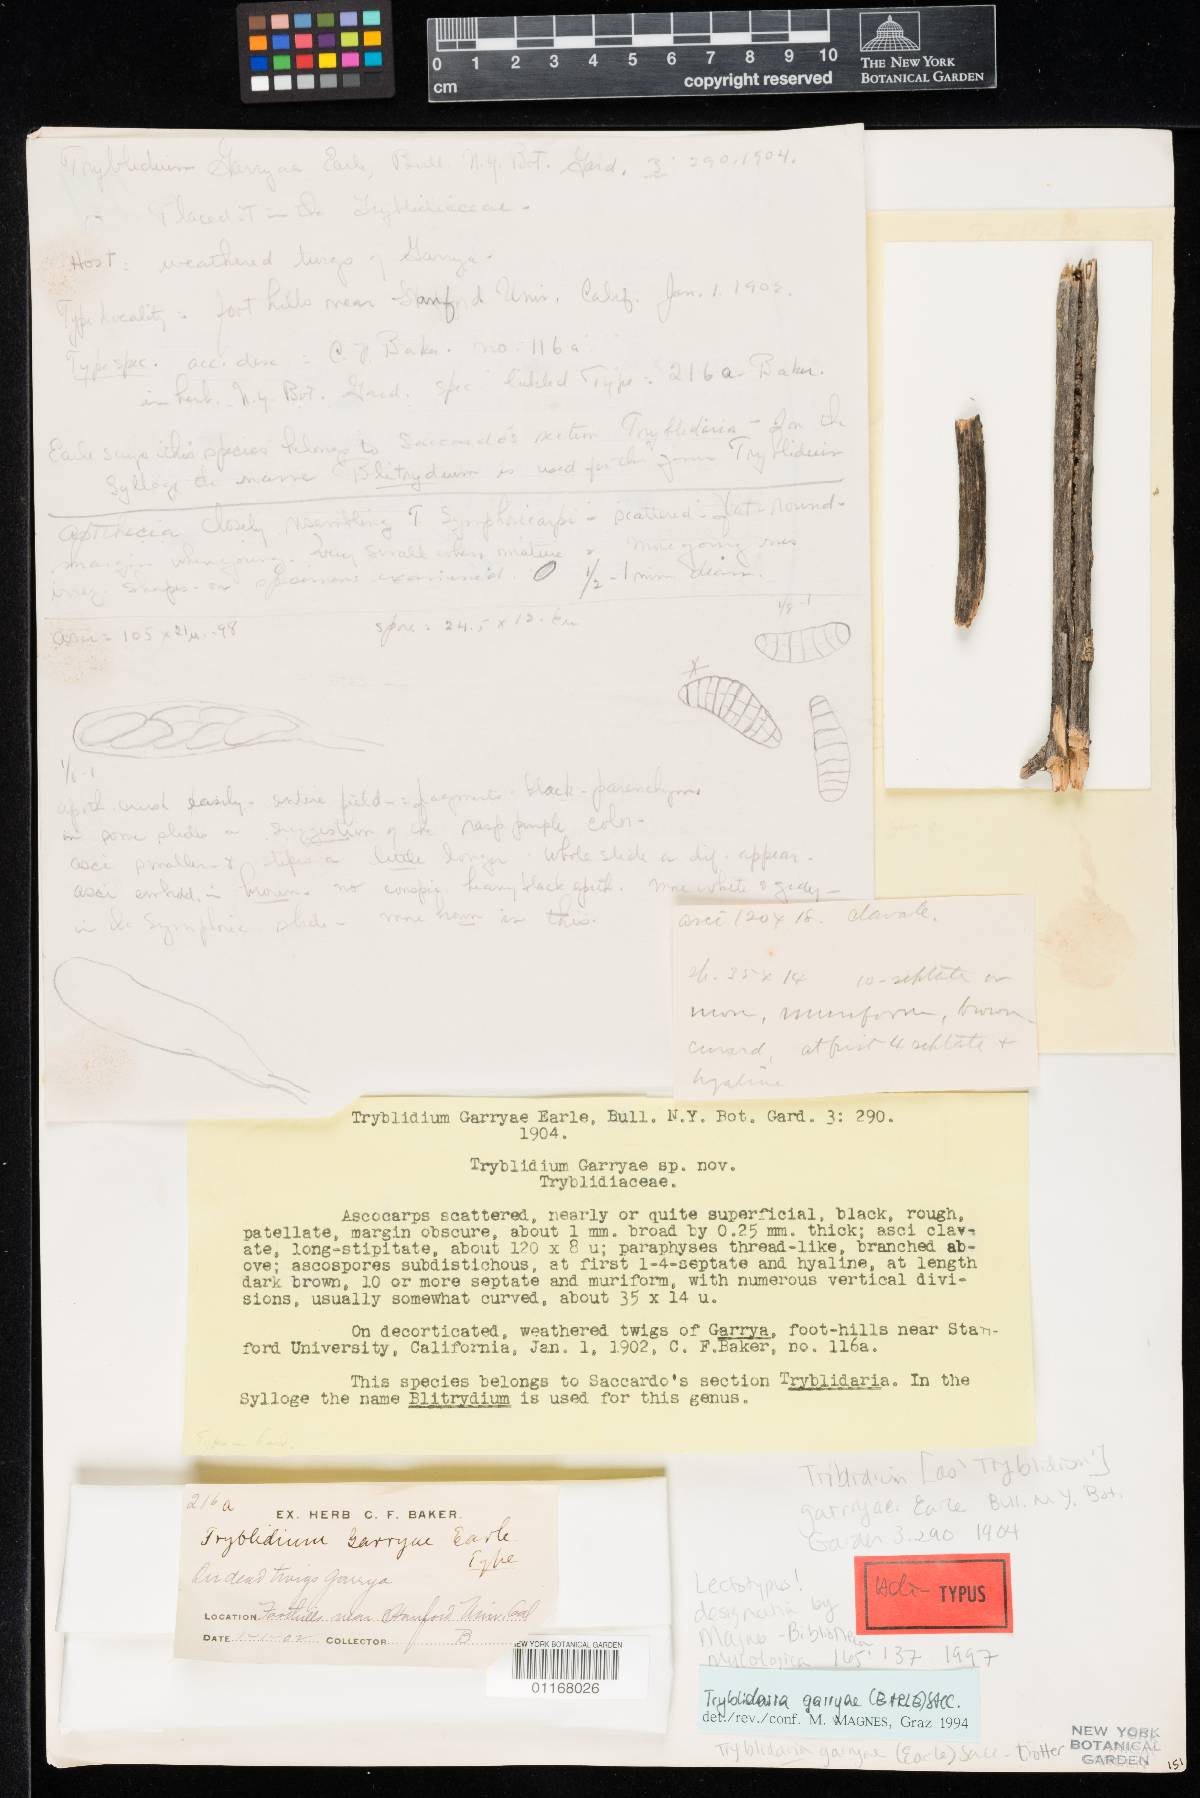 0 1 2 3 4 5 6 7 8 9 10
cm
copyright reserved
THE NEW YORK
BOTANICAL GARDEN
Tryblidium Garryae Earle, Bull. N.Y. Bot. Gard. 3: 290. 1904.
Placed it in the Tryblidiaceae.
Host: weathered twigs of Garrya.
Type locality: foot hills near Stanford Univ. Calif. Jan. 1. 1902.
Type spec. acc. desc: C.F. Baker. no. 116a
in herb. N.Y. Bot. Gard. spec. labeled Type: 216a Baker.
Earle says this species belongs to Saccardo's section Tryblidaria - In the
Sylloge the name Blitrydium is used for the genus Tryblidium
Apothecia closely resembling T. Symphoricarpi - scattered - round -
margin when young. Very small when mature
irreg. shapes - on specimens examined. 1/2 - 1 mm diam.
asci = 105 x 21µ - 98
spore = 24.5 x 12.
1/8 - 1
1/8 - 1
apoth. crush easily - entire field - fragments - black - parenchyma
in some slides a suggestion of the purple color -
asci smaller & stipes a little longer. Whole slide a dif. appear.
asci embdd. in brown. no conspic. heavy black apoth. more white & grey -
in the Symphoric. slide - more brown in this.
asci 120 x 18. clavate.
sp. 35 x 14 10-septate or
more, muriform, brown
curved, at first 4 septate +
hyaline
Tryblidium Garryae Earle, Bull. N.Y. Bot. Gard. 3: 290.
1904.
Tryblidium Garryae sp. nov.
Tryblidiaceae.
Ascocarps scattered, nearly or quite superficial, black, rough,
patellate, margin obscure, about 1 mm. broad by 0.25 mm. thick; asci clav-
ate, long-stipitate, about 120 x 8 u; paraphyses thread-like, branched ab-
ove; ascospores subdistichous, at first 1-4-septate and hyaline, at length
dark brown, 10 or more septate and muriform, with numerous vertical divi-
sions, usually somewhat curved, about 35 x 14 u.
On decorticated, weathered twigs of Garrya, foot-hills near Stan-
ford University, California, Jan. 1, 1902, C. F.Baker, no. 116a.
This species belongs to Saccardo's section Tryblidaria. In the
Sylloge the name Blitrydium is used for this genus.
216a
EX. HERB C. F. BAKER.
Tryblidium Garryae Earle
Type
On dead twigs Garrya
LOCATION Foothills near Stanford Univ. Cal
DATE 1-1-02 COLLECTOR B
NEW YORK BOTANICAL GARDEN
01168026
Triblidium [as 'Tryblidium']
garryae Earle Bull. N.Y. Bot.
Garden 3:290 1904
Lecto- TYPUS
Lectotypus!
designatin by
Magnes - Bibliotheca
Mycologica 165: 137 1997
Tryblidaria garryae (EARLE) SACC.
det./rev./conf. M. MAGNES, Graz 1994
Tryblidaria garryae (Earle) Sacc. - Trotter
NEW YORK
BOTANICAL
GARDEN
151